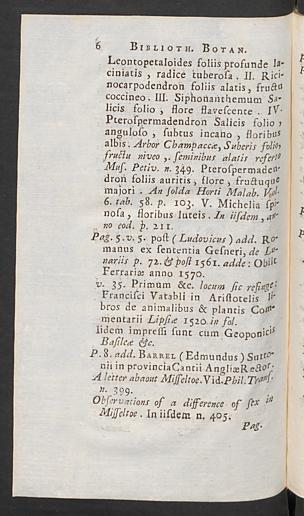 6 BIBLIOTH. BOTAN.
Leontopetaloides foliis profunde la-
ciniatis , radice tuberosa . II. Rici-
nocarpodendron foliis alatis, fructu
coccineo. III. Siphonanthemum Sa-
licis folio , flore flavescente . IV.
Pterospermadendron Salicis folio ,
anguloso , subtus incano , floribus
albis. Arbor Champaccæ, Suberis folio,
fructu niveo ,. seminibus alatis referto
Mus. Petiv. n. 349. Pterospermaden-
dron foliis auritis, flore , fructuque
majori . An solda Horti Malab. Vol.
6. tab. 58. p. 103. V. Michelia spi-
nosa, floribus luteis. In iisdem, an-
no eod. p. 211.
Pag. 5. v. 5. post ( Ludovicus ) add. Ro-
manus ex sententia Gesneri, de Lu-
nariis p. 72. & post 1561. adde: Obiit
Ferrariæ anno 1570.
v. 35. Primum &c. locum sic refinge:
Francisci Vatabli in Aristotelis li-
bros de animalibus & plantis Com-
mentarii Lipsiæ 1520 in fol.
Iidem impressi sunt cum Geoponicis
Basileæ &c.
P. 8. add. BARREL (Edmundus) Sutto-
nii in provincia Cantii Angliæ Rector.
A letter abaout Misseltoe. Vid. Phil. Trans.
n. 399.
Observations of a difference of sex in
Misseltoe. In iisdem n. 405.
Pag.